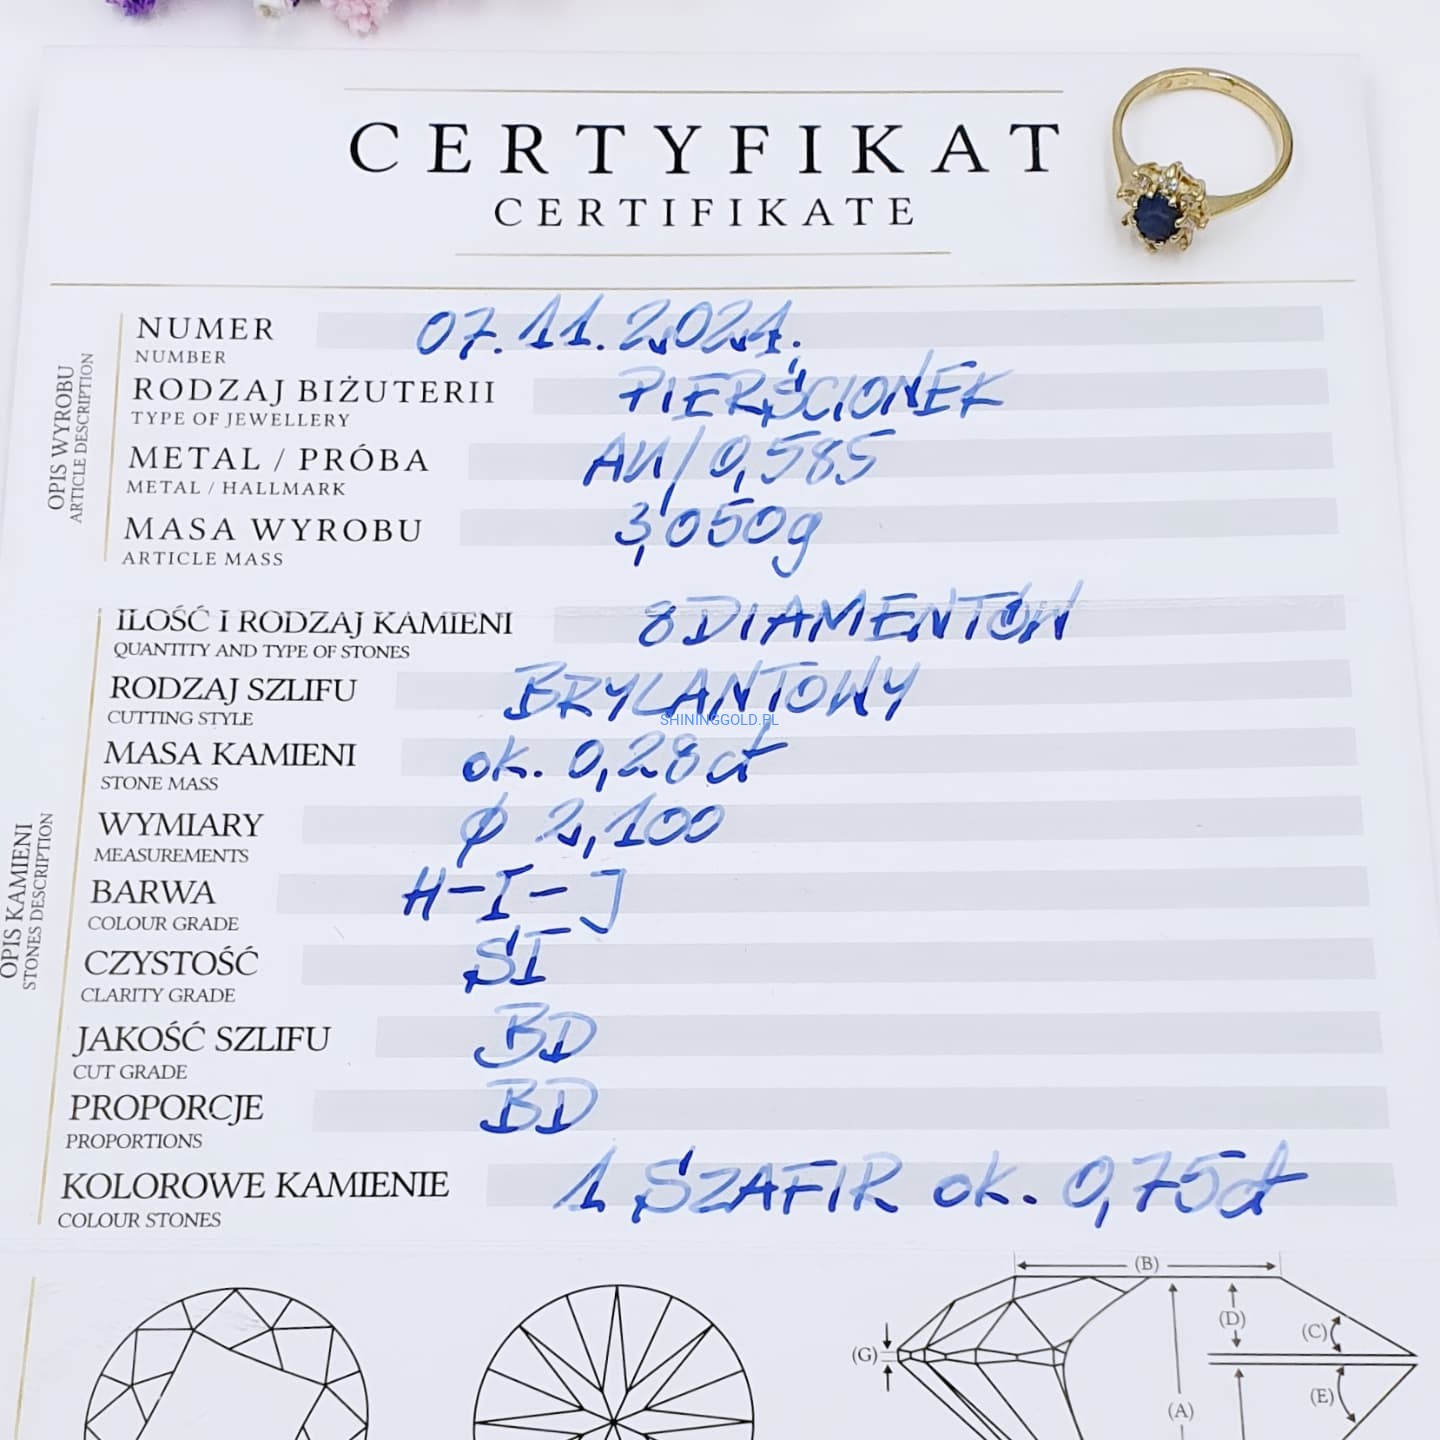 CERTYFIKAT
CERTIFIKATE
OPIS WYROBU
ARTICLE DESCRIPTION
NUMER 07.11.2021.
NUMBER
RODZAJ BIŻUTERII PIERŚCIONEK
TYPE OF JEWELLERY
METAL / PRÓBA AU/0,585
METAL / HALLMARK
MASA WYROBU 3,050g
ARTICLE MASS
OPIS KAMIENI
STONES DESCRIPTION
ILOŚĆ I RODZAJ KAMIENI 8 DIAMENTÓW
QUANTITY AND TYPE OF STONES
RODZAJ SZLIFU BRYLANTOWY
CUTTING STYLE
SHININGGOLD.PL
MASA KAMIENI ok. 0,28ct
STONE MASS
WYMIARY ϕ 2,100
MEASUREMENTS
BARWA H-I-J
COLOUR GRADE
CZYSTOŚĆ SI
CLARITY GRADE
JAKOŚĆ SZLIFU BD
CUT GRADE
PROPORCJE BD
PROPORTIONS
KOLOROWE KAMIENIE 1 SZAFIR ok. 0,75ct
COLOUR STONES
(B)
(D)
(C)
(G)
(E)
(A)